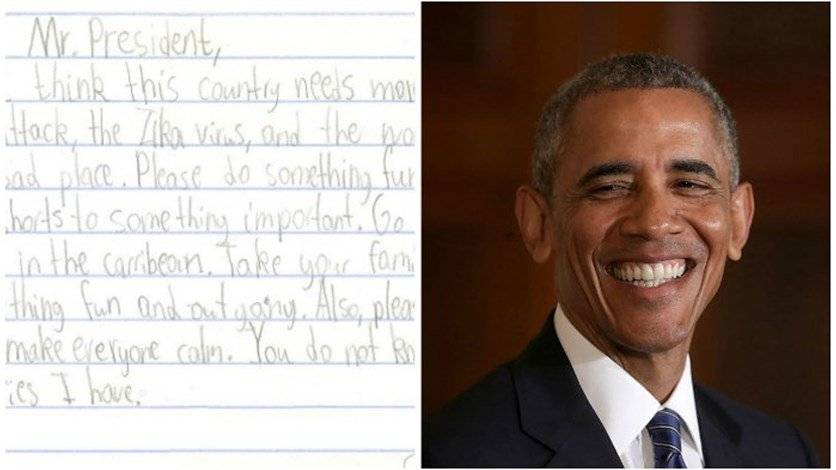 Mr. President,
think this country needs mor
ttack, the Zika virus, and the wo
ad place. Please do something fun
horts to something important. Go
in the carribean. Take your fami
thing fun and out going. Also, plea
make everyone calm. You do not kn
ies I have.